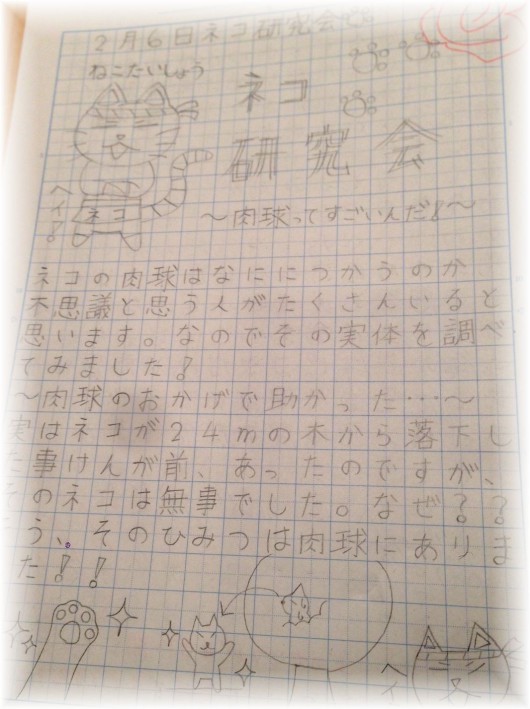 2月6日ネコ研究会
ねこたいしょう
ネコ
研究会
ヘイ!
ネコ
〜肉球ってすごいんだ!〜
ネコの肉球はなににつかうのか
不思議と思う人がたくさんいると
思います。なのでその実体を調べ
てみました!
〜肉球のおかげで助かった…〜
実はネコが24mの木から落下し
た事けんが前、あったのですが、
そのネコは無事でした。なぜ??
そう、、そのひみつは肉球にありま
した!!
ヘイ